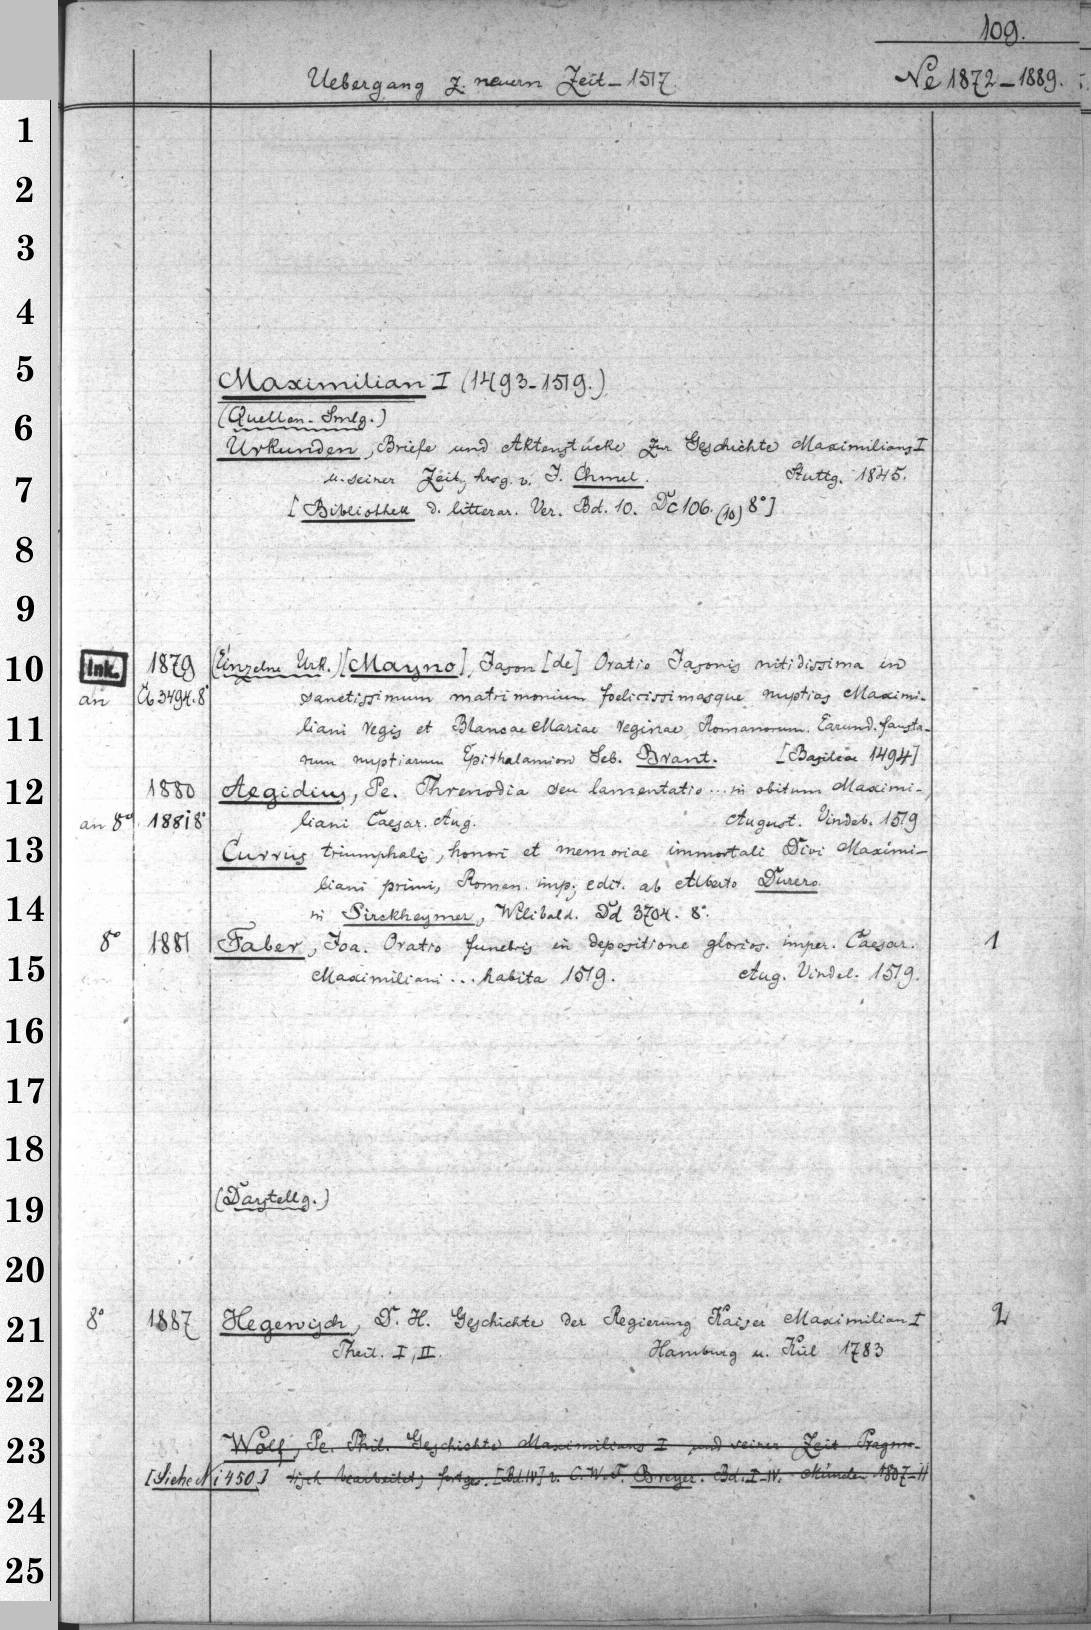 109.
Uebergang z. neuern Zeit – 1517. Ne 1872 – 1889.
1
2
3
4
5
Maximilian I (1493-1519.)
(Quellen-Smlg.)
6
Urkunden, Briefe und Aktenstücke zur Geschichte Maximilians I
u. seiner Zeit, hrsg. v. J. Chmel. Stuttg. 1845.
7
[Bibliothek d. litterar. Ver. Bd. 10. Dc 106. (10) 8°]
8
9
10
Ink. 1879 (Einzelne Urk.) [Mayno], Jason [de] Oratio Jasonis nitidissima in
an 3494. 8° sanctissimum matrimonium foelicissimasque nuptias Maximi-
11
liani regis et Blancae Mariae reginae Romanorum. Earund. fausta-
rum nuptiarum Epithalamion Seb. Brant. [Basileae 1494]
12
1880 Aegidius, Pe. Threnodia seu lamentatio ... in obitum Maximi-
an 8° 1881 8° liani Caesar. Aug. August. Vindel. 1519
13
Currus triumphalis, honori et memoriae immortali Divi Maximi-
liani primi, Roman. imp; edit. ab Alberto Durero.
14
in Pirckheymer, Wilibald. Dd 3704. 8°.
8° 1881 Faber, Joa. Oratio funebris in depositione glorios. imper. Caesar. 1
15
Maximiliani ... habita 1519. Aug. Vindel. 1519.
16
17
18
19
(Darstellg.)
20
21
8° 1887 Hegewisch, D. H. Geschichte der Regierung Kaiser Maximilian I 2
Theil. I, II. Hamburg u. Kiel 1783
22
23
Wolf, Pe. Phil. Geschichte Maximilians I und seiner Zeit Pragma-
[Siehe Ni 450.] tisch bearbeitet; fortges. [Bd. IV] v. C. W. F. Breyer. Bd. I-IV. München 1807-11
24
25